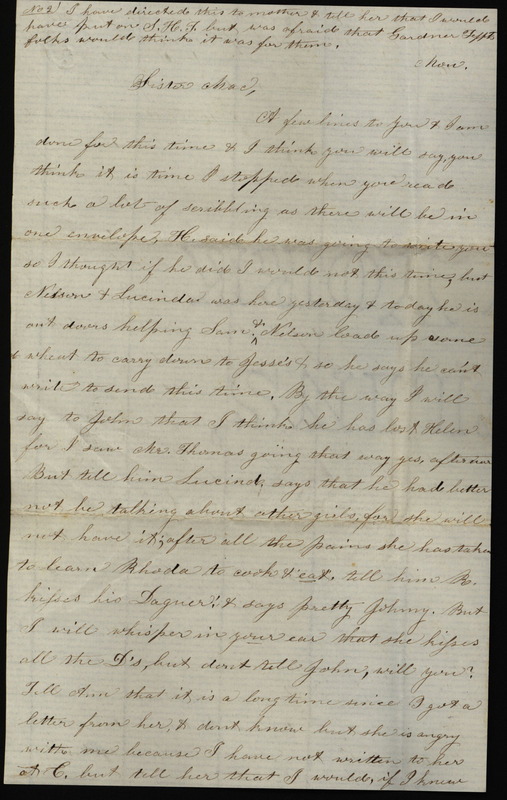 No 2. I have directed this to mother & tell her that I would
have put on S. H. F. but was afraid that Gardner Tefft's
folks would think it was for them.
Mon.
Sister Mac,
A few lines to you & I am
done for this time & I think you will say, you
think it is time I stopped when you read
such a lot of scribbling as there will be in
one envelope. He said he was going to write you
so I thought if he did I would not this time, but
Nelson & Lucinda was here yesterday & today he is
out doors helping Sam & Nelson load up some
wheat to carry down to Jesse's & so he says he can't
write to send this time. By the way I will
say to John that I think he has lost Helen
for I saw Mr. Thomas going that way yes. afternoon
But tell him Lucinda says that he had better
not be talking about other girls, for she will
not have it, after all the pains she has taken
to learn Rhoda to cook & eat. tell him R.
kisses his Daguer'. & says pretty Johny. But
I will whisper in your ear that she kisses
all the D's, but dont tell John, will you?
Tell Ann that it is a long time since I got a
letter from her, & dont know but she is angry
with me because I have not written to her
at C. but tell her that I would, if I knew